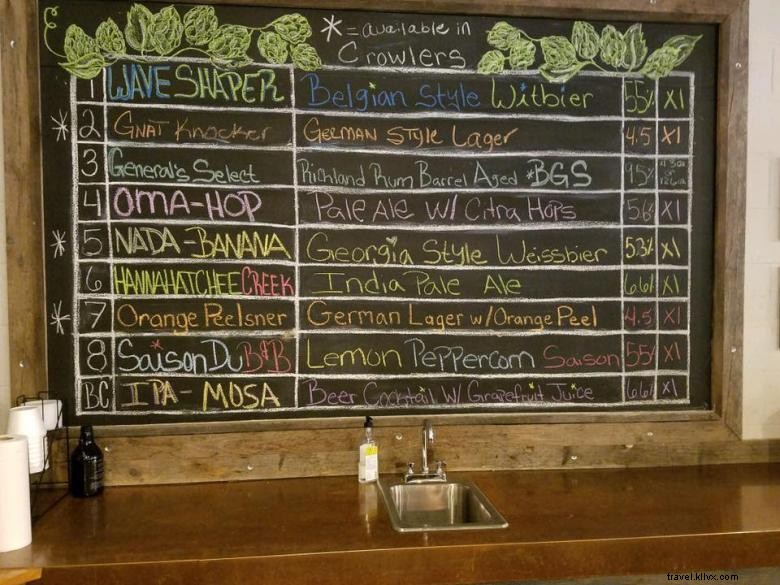 * = available in
Crowlers
1 WAVE SHAPER Belgian Style Witbier 5.5% X1
* 2 GNAT Knocker GERMAN STYLE Lager 4.5 X1
3 General's Select Richland Rum Barrel Aged *BGS 9.5%
4 OMA-HOP PALE ALE W/ Citra Hops 5.6% X1
* 5 NADA-BANANA Georgia Style Weissbier 5.3% X1
6 HANNAHATCHEE CREEK India Pale Ale 6.6% X1
* 7 Orange Peelsner German Lager w/Orange Peel 4.5 X1
8 Saison Du B&B Lemon Peppercorn Saison 5.5% X1
BC IPA-MOSA Beer Cocktail W/ Grapefruit Juice 6.6% X1
travel.klhxx.com